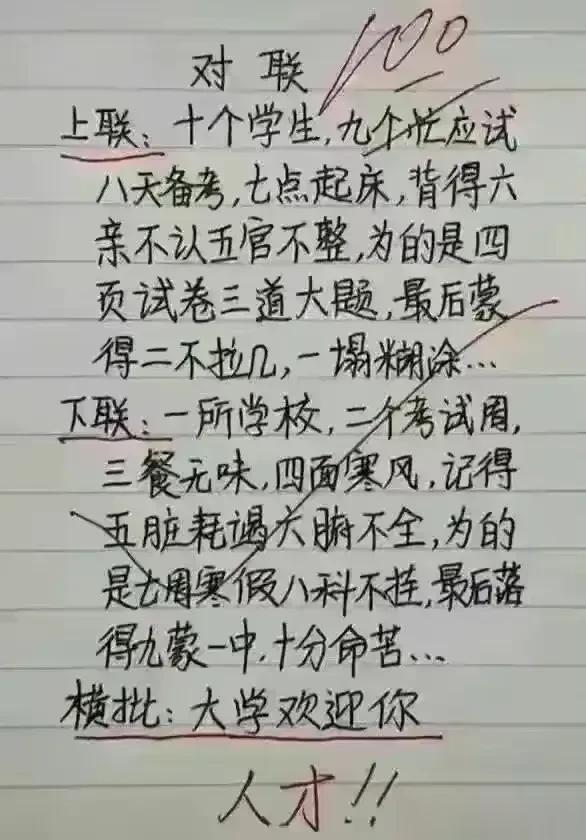 对联
100
上联：十个学生，九个忙应试
八天备考，七点起床，背得六
亲不认五官不整，为的是四
页试卷三道大题，最后蒙
得二不拉几，一塌糊涂...
下联：一所学校，二个考试周，
三餐无味，四面寒风，记得
五脏耗竭六腑不全，为的
是七周寒假八科不挂，最后落
得九蒙一中，十分命苦...
横批：大学欢迎你
人才！！